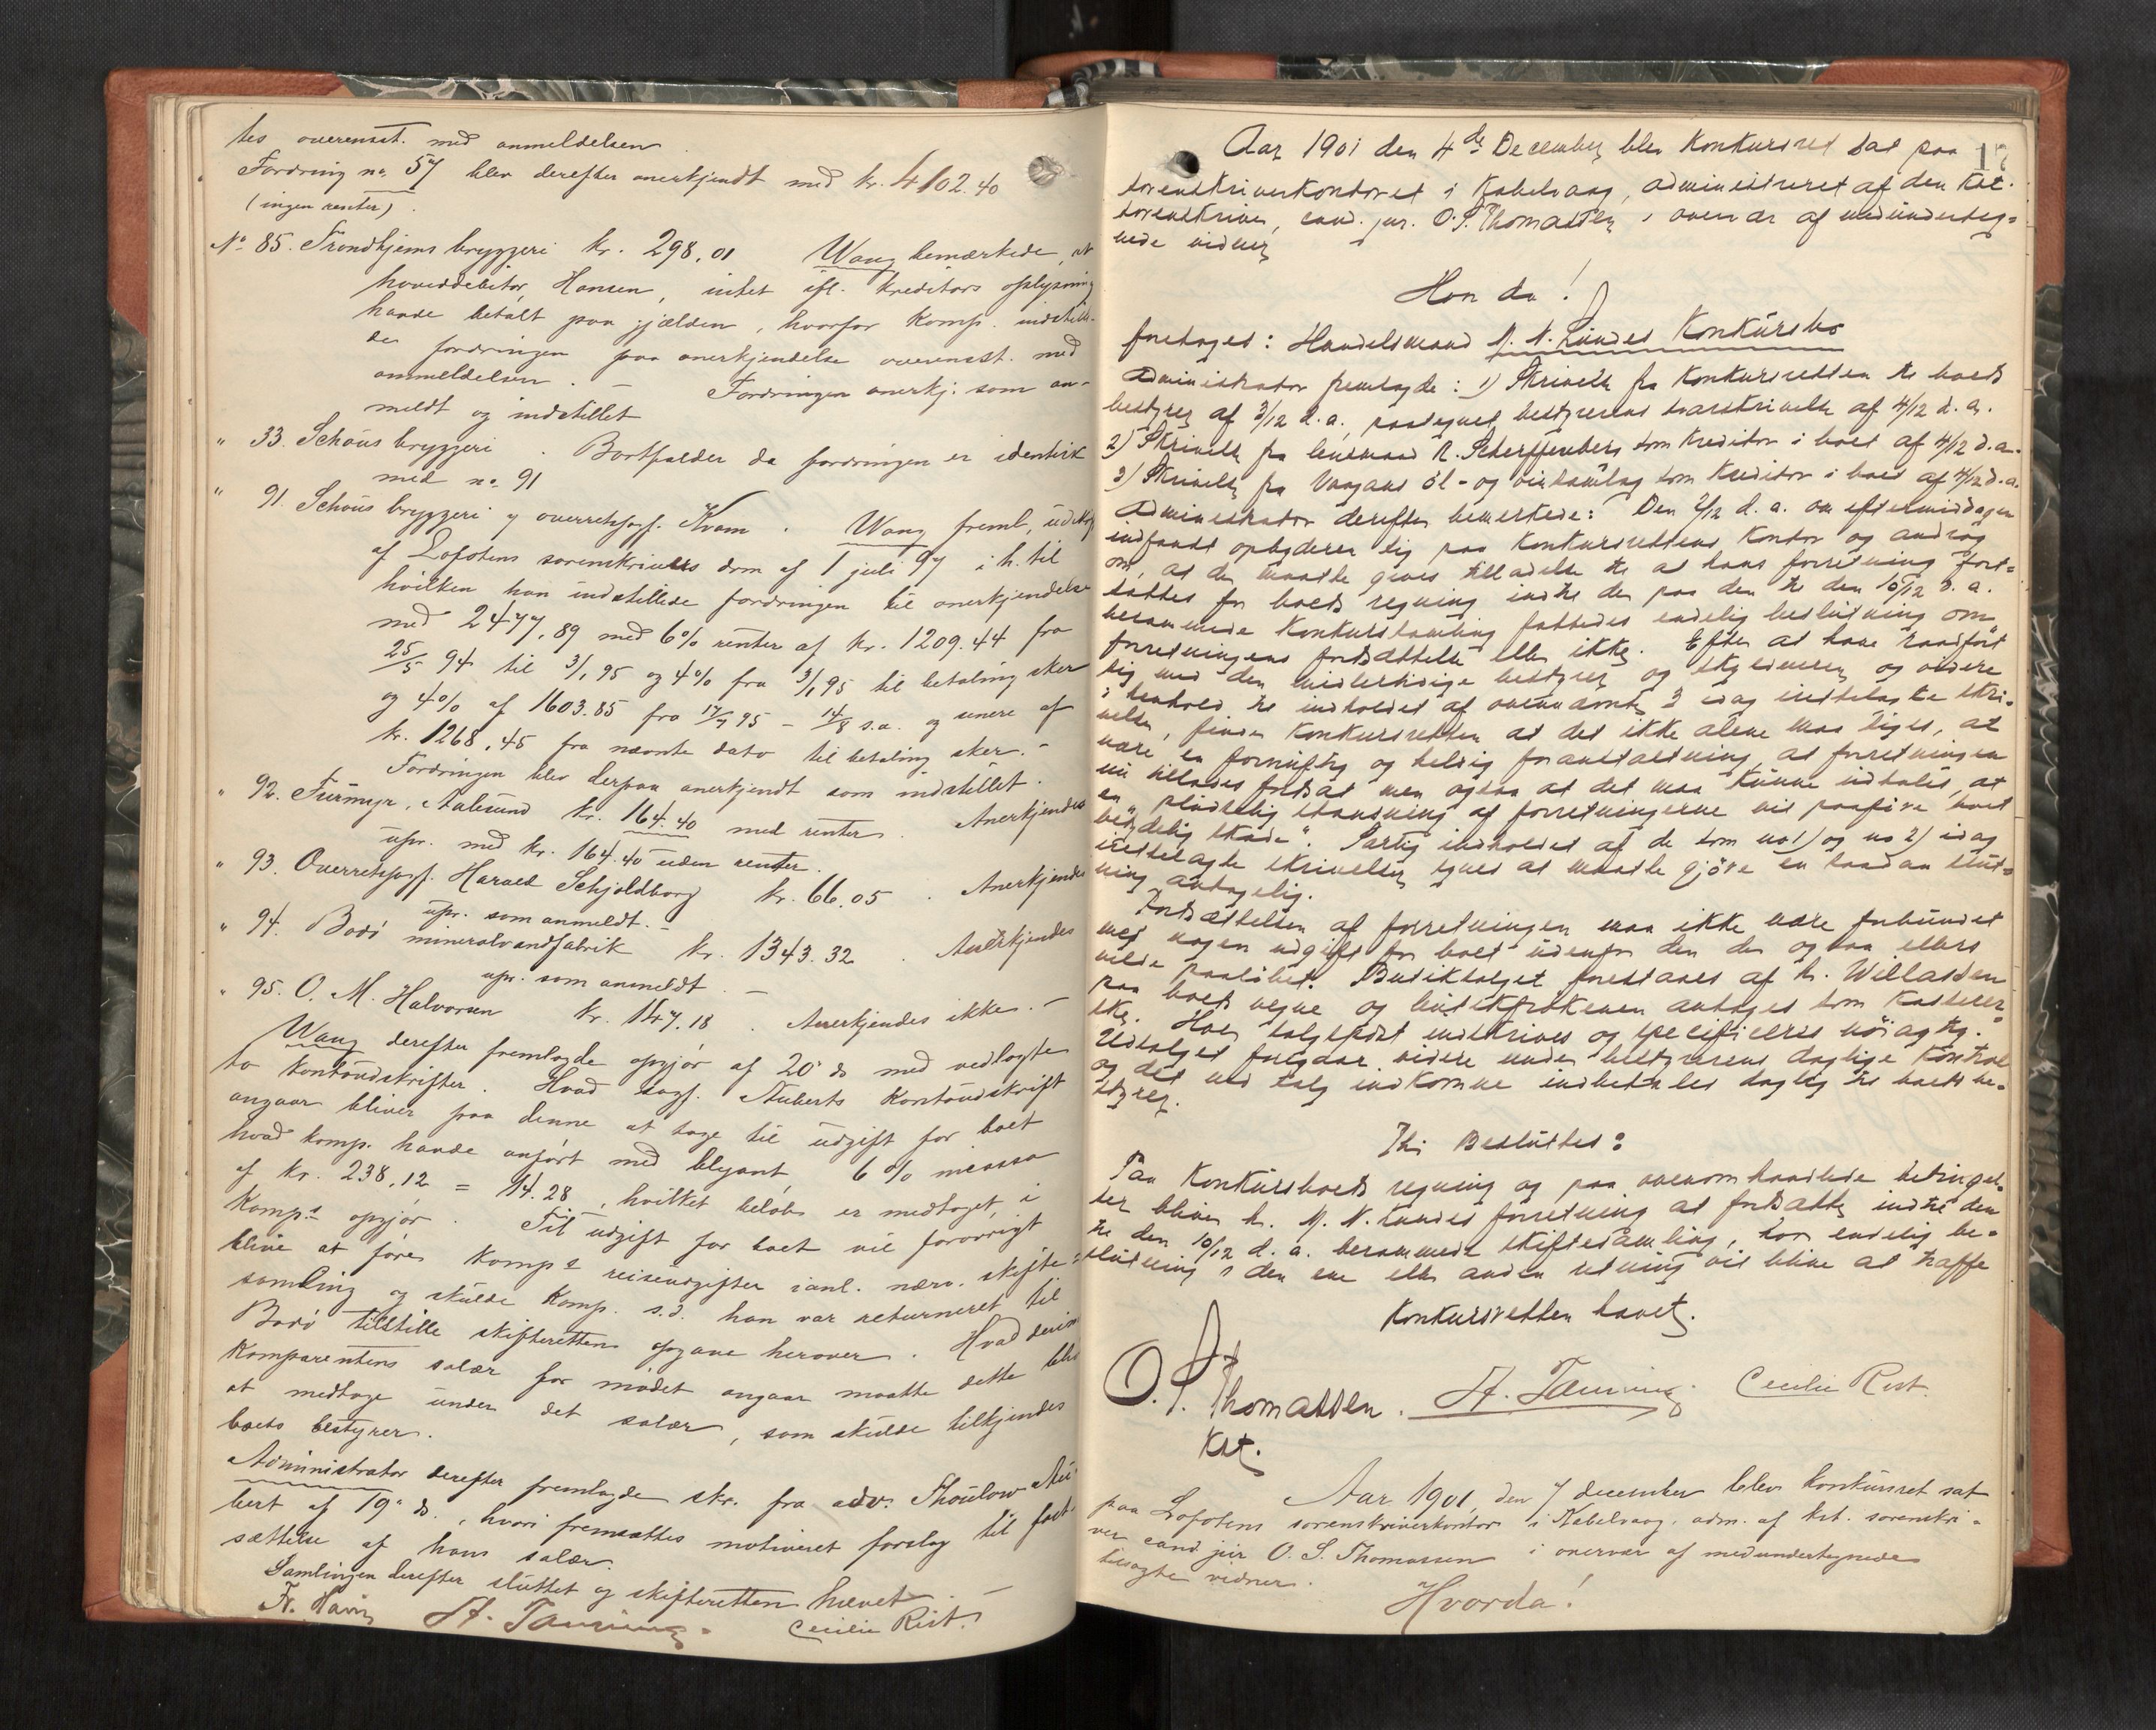 tes overensst. med anmeldelsen
Fordring no. 57 blev derefter anerkjendt med kr. 4102.40
(ingen renter).
No. 85. Trondhjems bryggeri kr. 298,01 Wang bemærkede, at
hoveddebitor, Hansen, intet ifl. kreditors oplysning
havde betalt paa gjælden, hvorfor komp. indstill-
der fordringen paa anerkjendelse overensst. med
anmeldelsen. – Fordringen anerkj. som an-
meldt og indstillet
" 33. Schous bryggeri. Bortfalder da fordringen er identisk
med no. 91
" 91. Schous bryggeri v overretssagf. Kvam. Wang freml. udskr
af Lofotens sorenskrivers dom af 1 juli 97 i h. til
hvilken han indstillede fordringen til anerkjendelse
med 2477,89 med 6% renter af kr. 1209.44 fra
25/5 94 til 3/1 95 og 4% fra 3/1 95 til betaling sker
og 4% af 1603.85 fra 17/7 95 – 14/8 s.a. og senere af
kr. 1268,45 fra nævnte dato til betaling sker. –
Fordringen blev derpaa anerkjendt som indstillet.
" 92. Furmyr, Aalesund kr. 164.40 med renter. Anerkjendes
upr. med kr. 164.40 uden renter.
" 93. Overretssagf. Harald Schjoldborg kr. 66.05. Anerkjendes
upr. som anmeldt. –
" 94. Bodø mineralvandfabrik kr. 1343.32. Anerkjendes
upr. som anmeldt. –
" 95. O. M. Halvorsen kr. 147.18. Anerkjendes ikke. –
Wang derefter fremlagde opgjør af 20 ds med vedlagte
to kontoudskrifter. Hvad sagf. Auberts kontoudskrift
angaar bliver paa denne at tage til udgift for boet
hvad komp. havde anført med blyant, 6% incasso
af kr. 238,12 = 14.28, hvilket beløb er medtaget i
Komp.s opgjør. Til udgift for boet vil forøvrigt
blive at føre komps reiseudgifter ianl. nærv. skifte-
samling og skulde komp. s.s. han var returneret til
Bodø tilstille skifteretten opgave herover. Hvad derim
komparentens salær for mødet angaar maatte dette blive
at medtage under det salær, som skulde tilkjendes
boets bestyrer.
Administrator derefter fremlagde skr. fra adv. Thoulow Au-
bert af 19 ds., hvori fremsattes motiveret forslag til fast-
sættelse af hans salær.
Samlingen derefter sluttet og skifteretten hævet. –
A. Tanning. Cecilie Rist.
17
Aar 1901 den 4de December blev Konkursret sat paa
sorenskriverkontoret i Kabelvaag, administreret af den kst.
sorenskriver, cand. jur. O. S. Thomassen i overvær af medunderteg-
nede vidner
Hvor da!
foretoges: Handelsmand M. N. Lundes Konkursbo
Administrator fremlagde: 1) Skrivelse fra Konkursretten til boets
bestyrer af 3/12 d.a., paategnet bestyrerens svarskrivelse af 4/12 d.a.
2) Skrivelse fra lensmand R. Scherffenberg som Kreditor i boet af 4/12 d.a.
3) Skrivelse fra Vaagans øl- og vinsamlag som Kreditor i boet af 4/12 d.a.
Administrator derefter bemerkede: Den 2/12 d.a. om eftermiddagen
indfandt opbyderen sig paa Konkursrettens Kontor og androg
om, at der maatte gives tilladelse til at hans forretning fort-
sattes for boets regning indtil der paa den til den 10/12 d.a.
berammede Konkurssamling fattedes endelig beslutning om
forretningens fortsættelse eller ikke. Efter at have raadført
sig med den midlertidige bestyrer og skyldneren og videre
i henhold til indholdet af ovennævnte 3 idag irettelagte skri-
velser, finder Konkursretten at det ikke alene maa siges, at
være en fornuftig og heldig foranstaltning, at forretningen
nu tillades fortsat men ogsaa at det maa kunne udtales, at
en "pludselig standsning af forretningerne vil paaføre boet
betydelig skade". Særlig indholdet af de som no 1) og no 2) idag
irettelagte skrivelser synes at maatte gjøre en saadan slut-
ning antagelig.
Fortsættelsen af forretningen maa ikke være forbundet
med nogen udgift for boet udenfor den der ogsaa ellers
vilde paaløbet. Butiksalget forestaaes af hr. Willassen
paa boets vegne og butikfrøkenen antages som kasserer-
ske. Hver salgspost indskrives og specificeres nøiagtig.
Udsalget foregaar videre under bestyrerens daglige kontrol
og det ved salg indkomne indbetales daglig til boets be-
styrer.
Thi Besluttes:
Paa Konkursboets regning og paa ovenomhandlede betingel-
ser bliver hr. M. N. Lundes forretning at fortsætte indtil den
til den 10/12 d.a. berammede skiftesamling, hvor endelig be-
slutning i den ene eller anden retning vil blive at træffe
Konkursretten hævet.
O. S. Thomassen. A. Tanning. Cecilie Rist.
Kst.
Aar 1901, den 7 december blev konkursret sat
paa Lofotens sorenskriverkontor i Kabelvaag, adm. af kst. sorenskri-
ver cand jur O. S. Thomassen i overvær af medundertegnede
tilsagte vidner.
Hvorda!